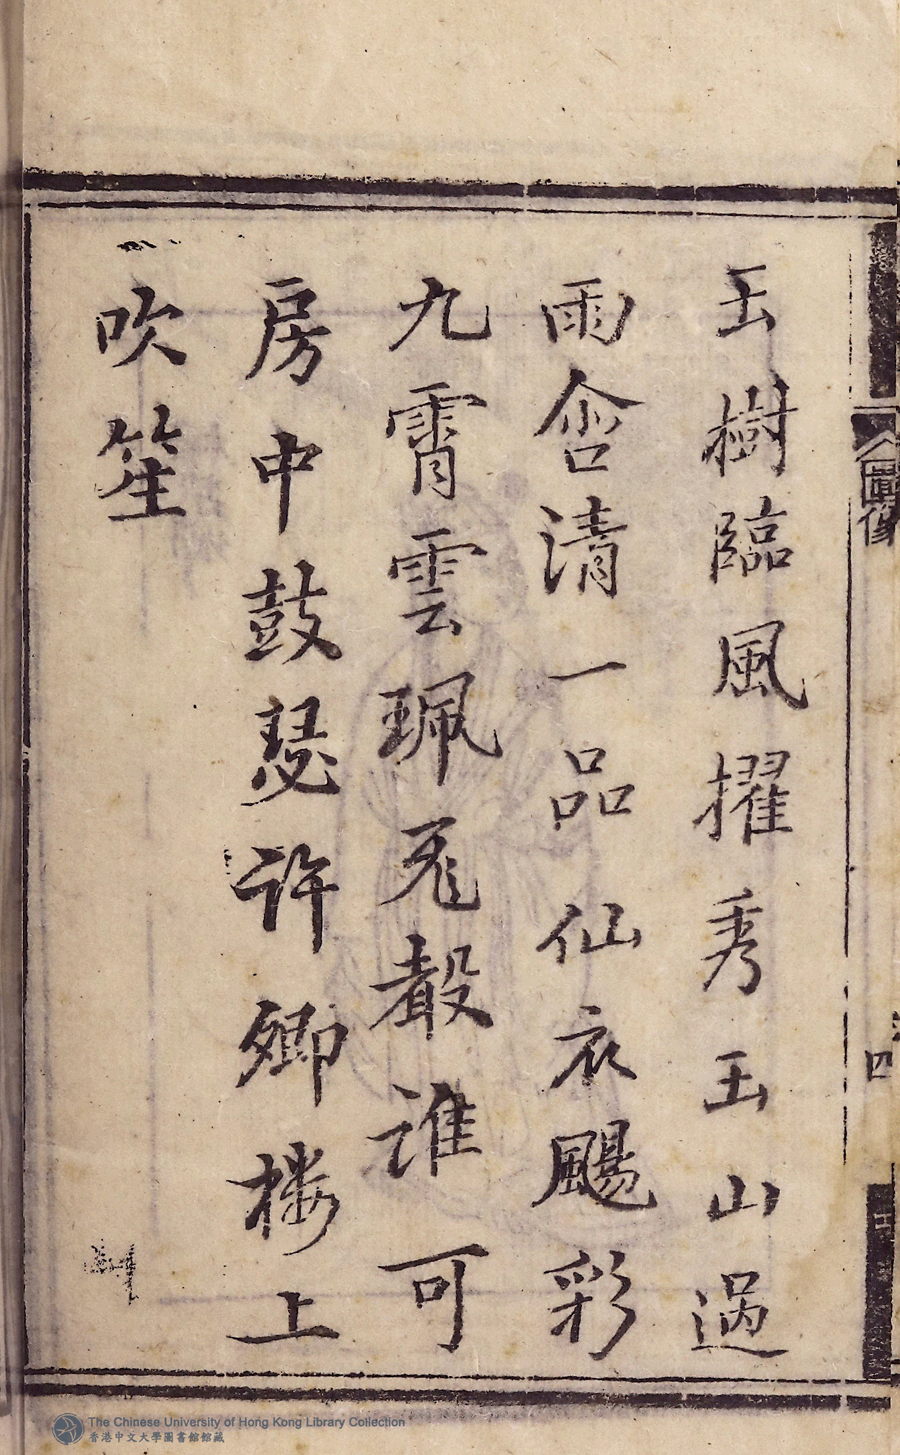 玉樹臨風擢秀玉山過
雨含清一品仙衣颺彩
九霄雲珮飛聲誰可
房中鼓瑟許卿楼上
吹笙
圖像
四
The Chinese University of Hong Kong Library Collection
香港中文大學圖書館館藏